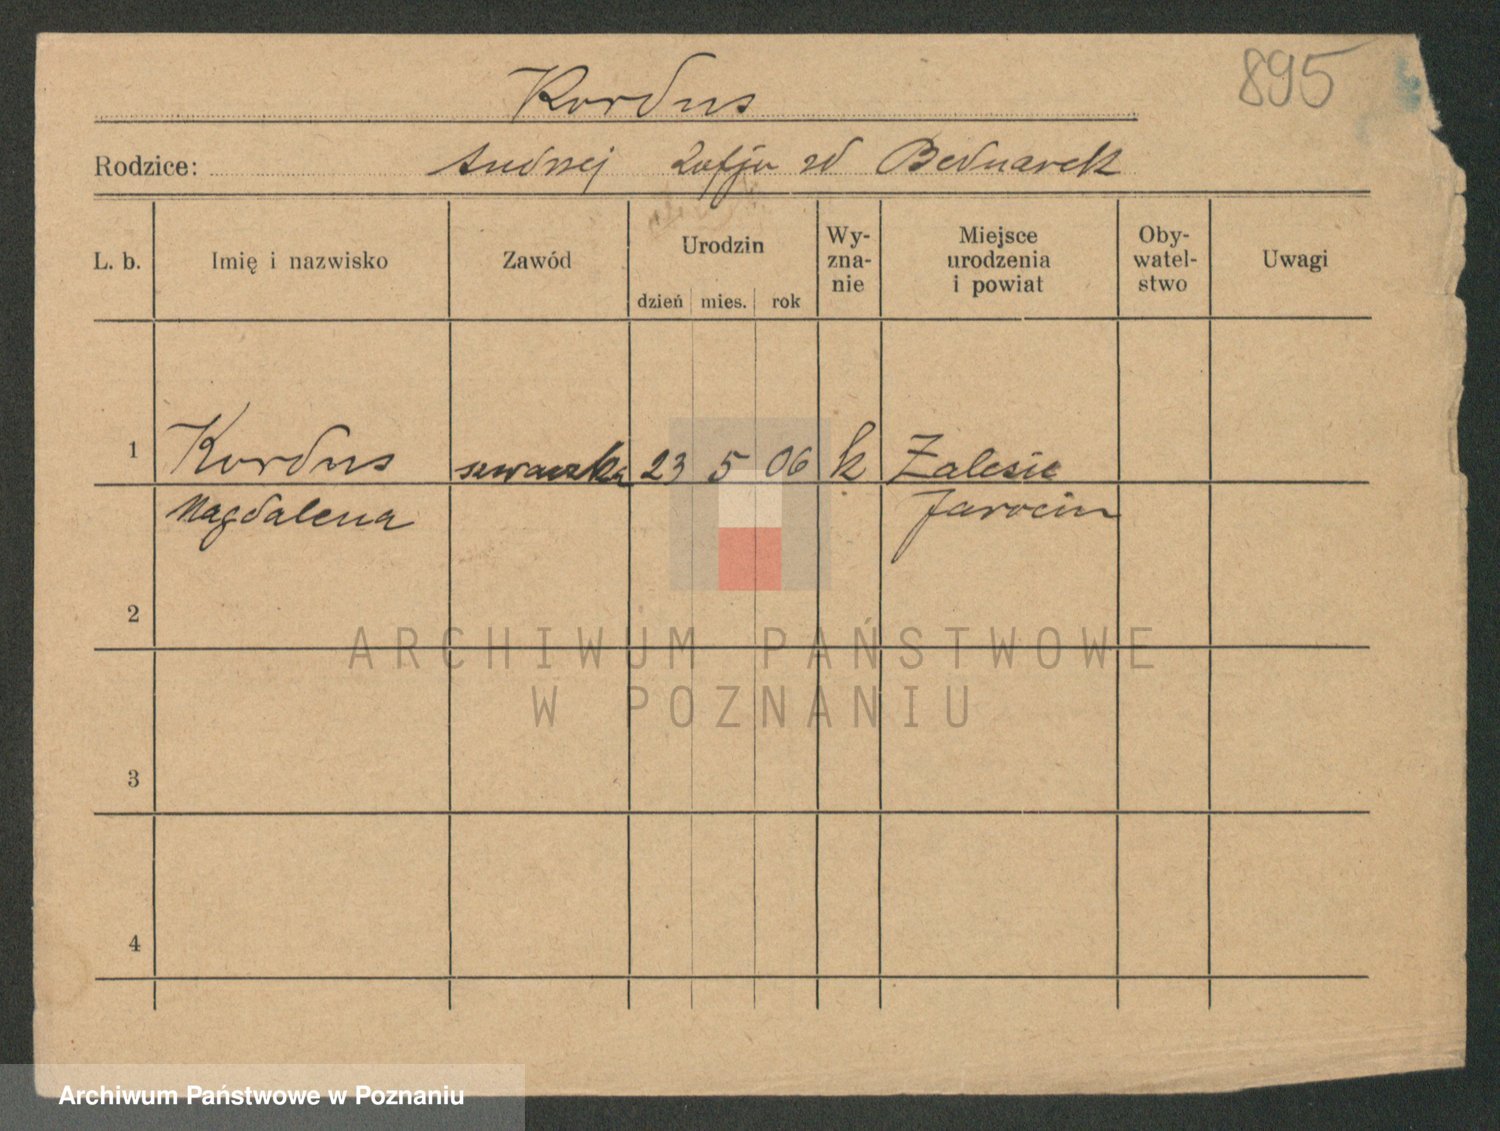 895
Kordus
Rodzice: Andrzej Zofja zd Bednarek
L. b. Imię i nazwisko Zawód Urodzin Wy- zna- nie Miejsce urodzenia i powiat Oby- watel- stwo Uwagi
dzień mies. rok
1 Kordus szwaczka 23 5 06 k Zalesie
Magdalena Jarocin
2
3
4
ARCHIWUM PAŃSTWOWE
W POZNANIU
Archiwum Państwowe w Poznaniu